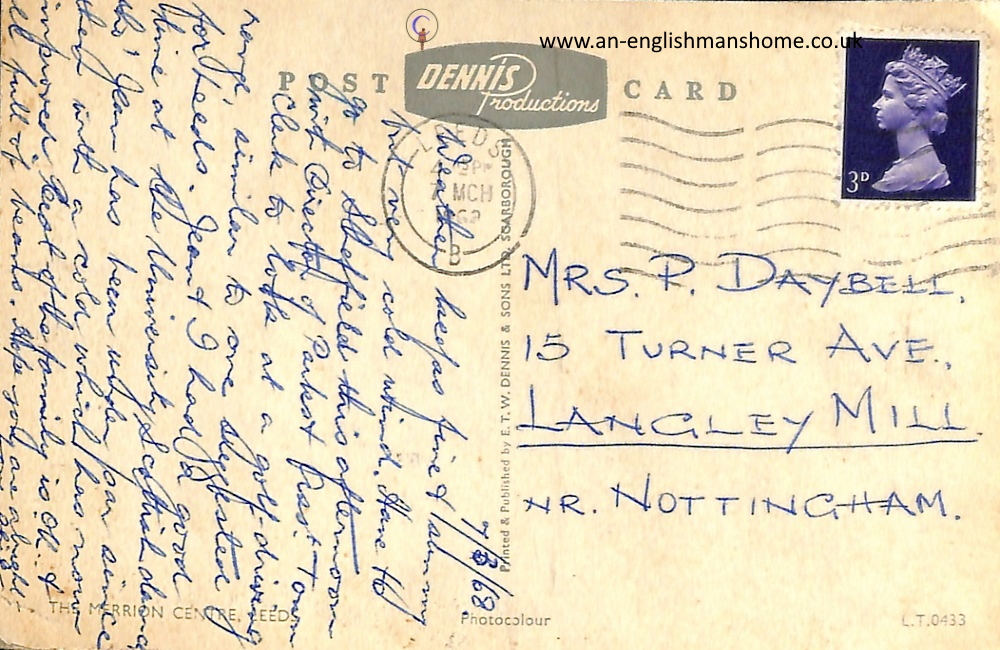 www.an-englishmanshome.co.uk
POST CARD
DENNIS
Productions
LEEDS
7 MCH
B
3D
7/3/68
Weather keeps fine & sunny
but very cold wind. Have to
go to Sheffield this afternoon
with Director of Parks & Town
Clerk to look at a golf-driving
range, similar to one suggested
for Leeds. Jean & I had a good
time at the University Scottish dance
tho' Jean has been under par since
then with a cold which has now
improved. Rest of the family is OK. &
full of beans. Hope you are alright
MRS. P. DAYBELL,
15 TURNER AVE.,
LANGLEY MILL
NR. NOTTINGHAM.
Printed & Published by E. T. W. DENNIS & SONS LTD., SCARBOROUGH
THE MERRION CENTRE, LEEDS.
Photocolour
L.T.0433